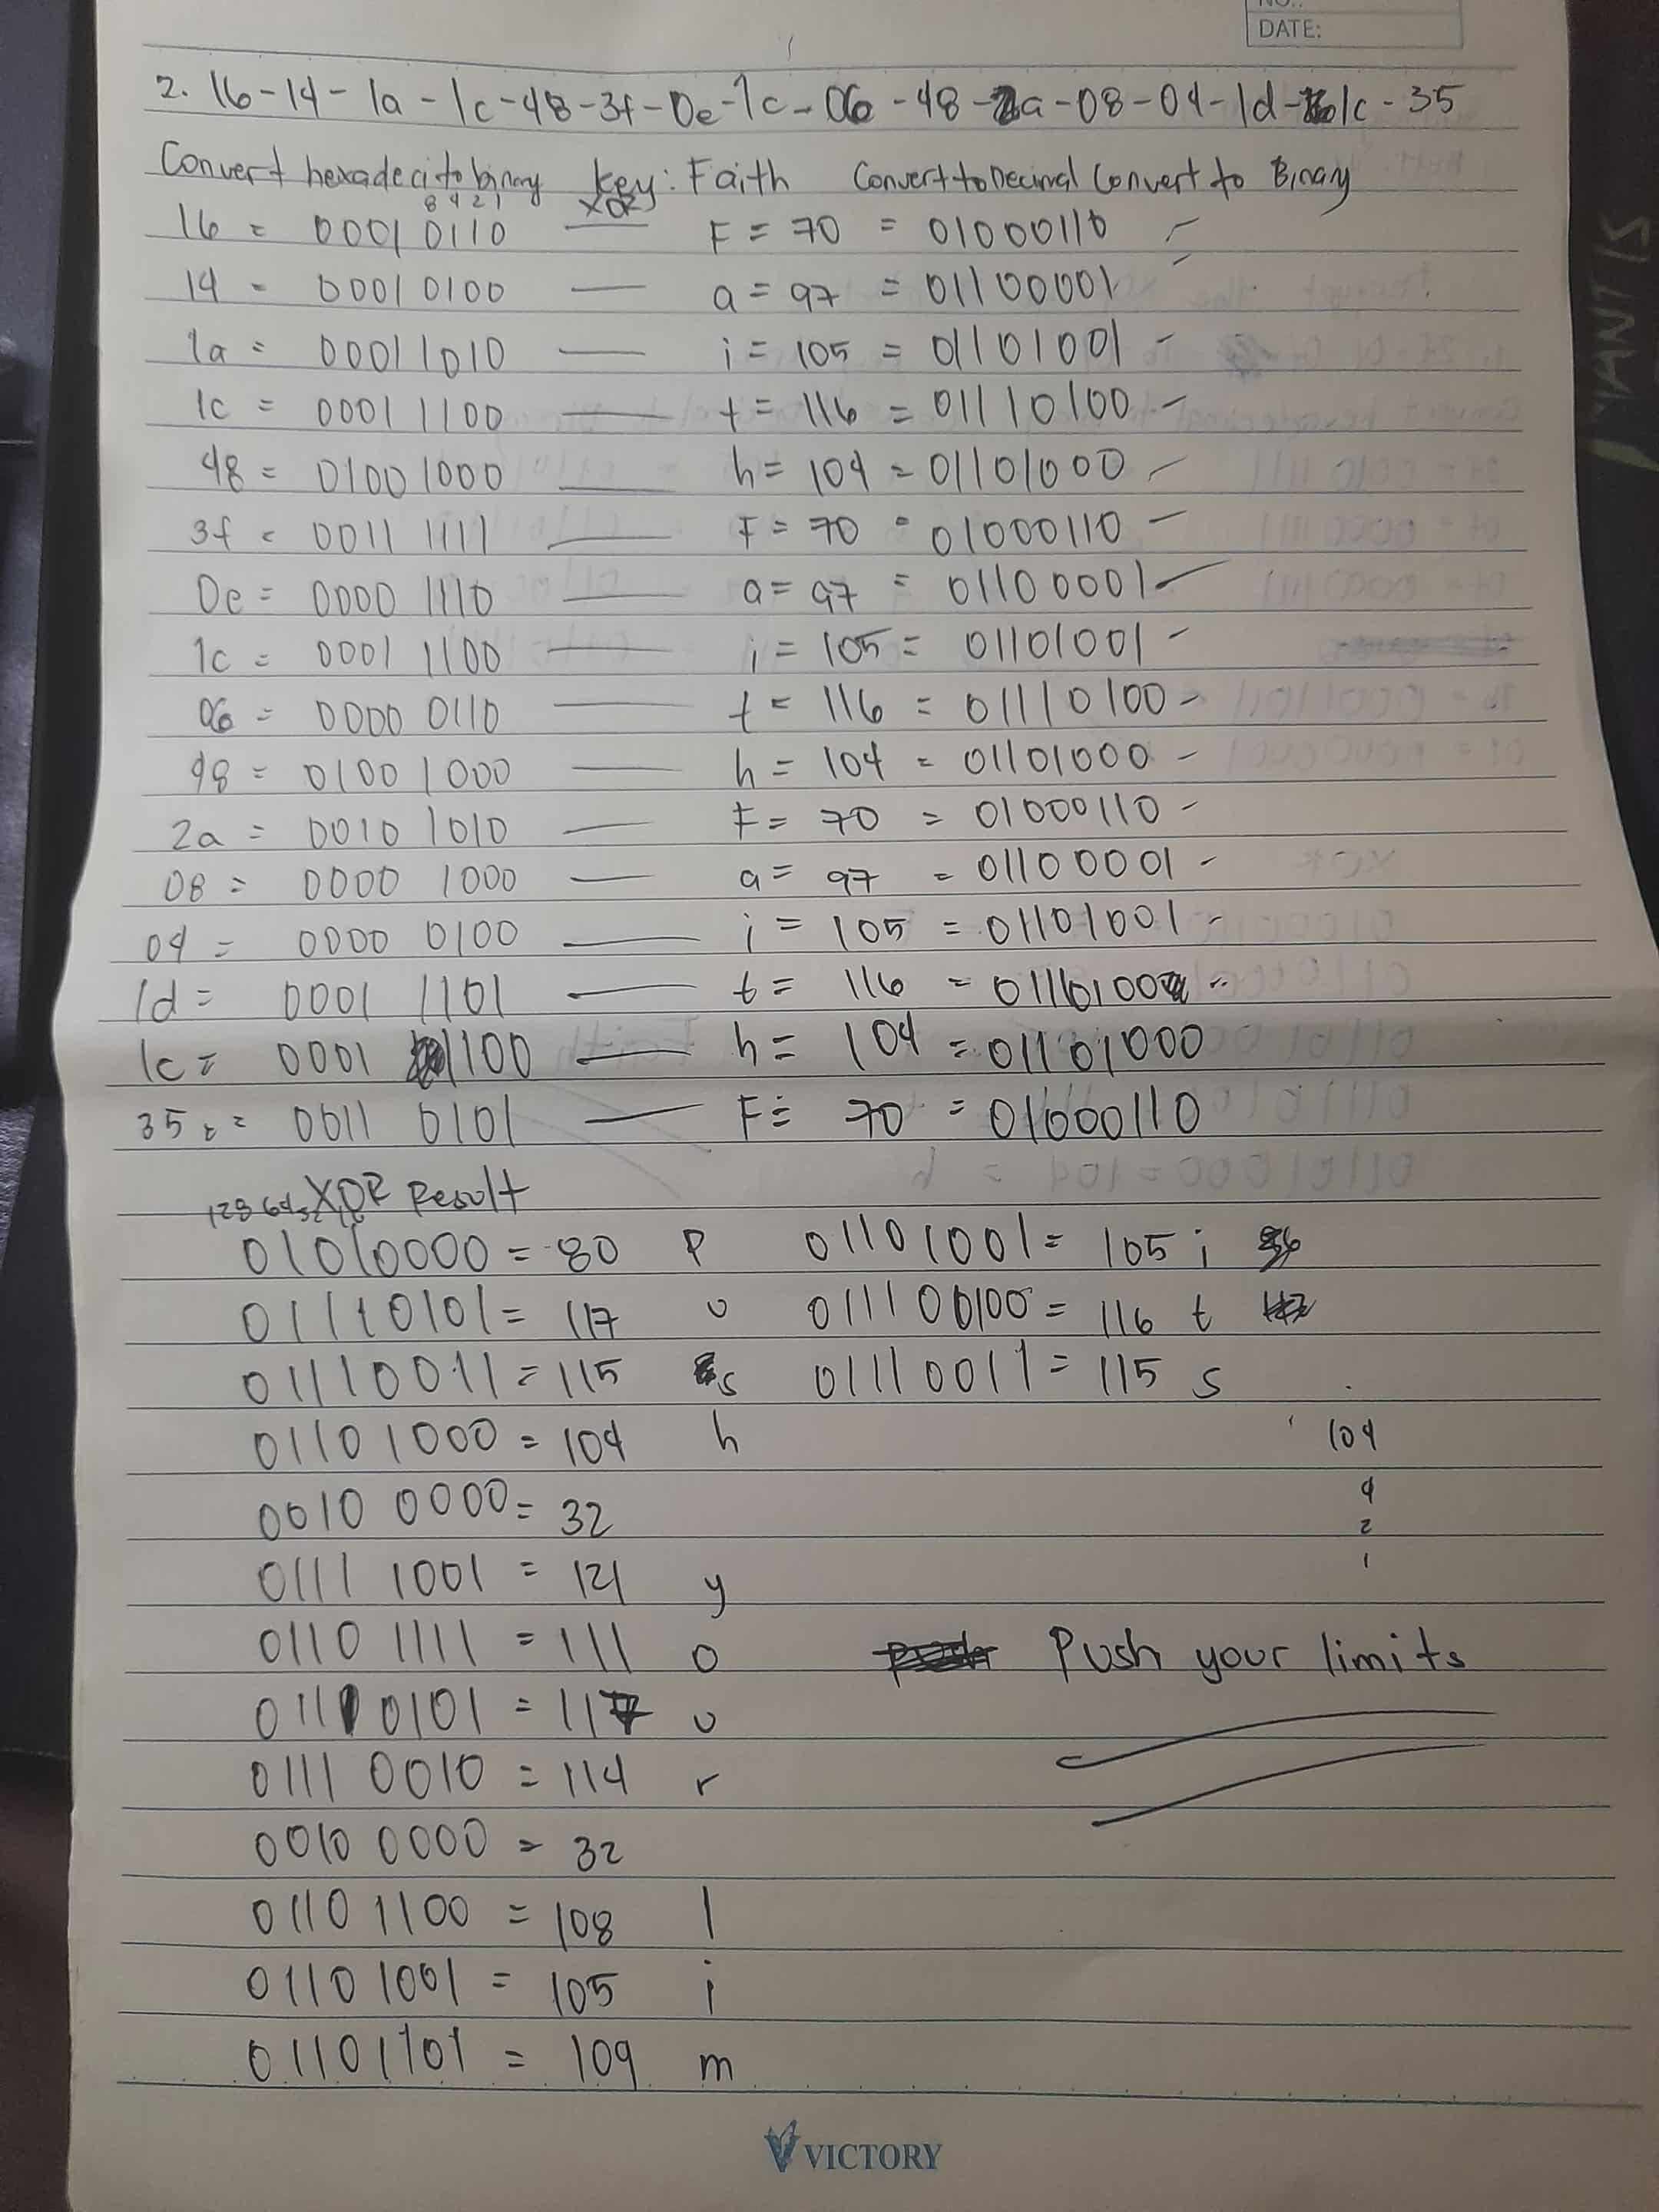 NO.:
DATE:
2. 16-14-1a-1c-48-3f-0e-1c-06-48-2a-08-04-1d-1c-35
Convert hexadeci to binary Key: Faith Convert to Decimal Convert to Binary
8 4 2 1 XOR
16 = 00010110 — F = 70 = 01000110 -
14 = 00010100 — a = 97 = 01100001 -
1a = 00011010 — i = 105 = 01101001 -
1c = 0001 1100 — t = 116 = 01110100 -
48 = 0100 1000 — h = 104 = 01101000 -
3f = 0011 1111 — F = 70 = 01000110 -
0e = 0000 1110 — a = 97 = 01100001 -
1c = 0001 1100 — i = 105 = 01101001 -
06 = 0000 0110 — t = 116 = 01110100 -
48 = 0100 1000 — h = 104 = 01101000 -
2a = 0010 1010 — F = 70 = 01000110 -
08 = 0000 1000 — a = 97 = 01100001 -
04 = 0000 0100 — i = 105 = 01101001 -
1d = 0001 1101 — t = 116 = 01110100 -
1c = 0001 1100 — h = 104 = 01101000
35 = 0011 0101 — F = 70 = 01000110
XOR Result
128 64 32 16
01010000 = 80 P 01101001 = 105 i
01110101 = 117 u 011100100 = 116 t
01110011 = 115 s 01110011 = 115 s
01101000 = 104 h 104
0010 0000 = 32 4
2
0111 1001 = 121 y 1
0110 1111 = 111 o Push your limits
01110101 = 117 u
0111 0010 = 114 r
0010 0000 = 32
0110 1100 = 108 l
0110 1001 = 105 i
01101101 = 109 m
VICTORY